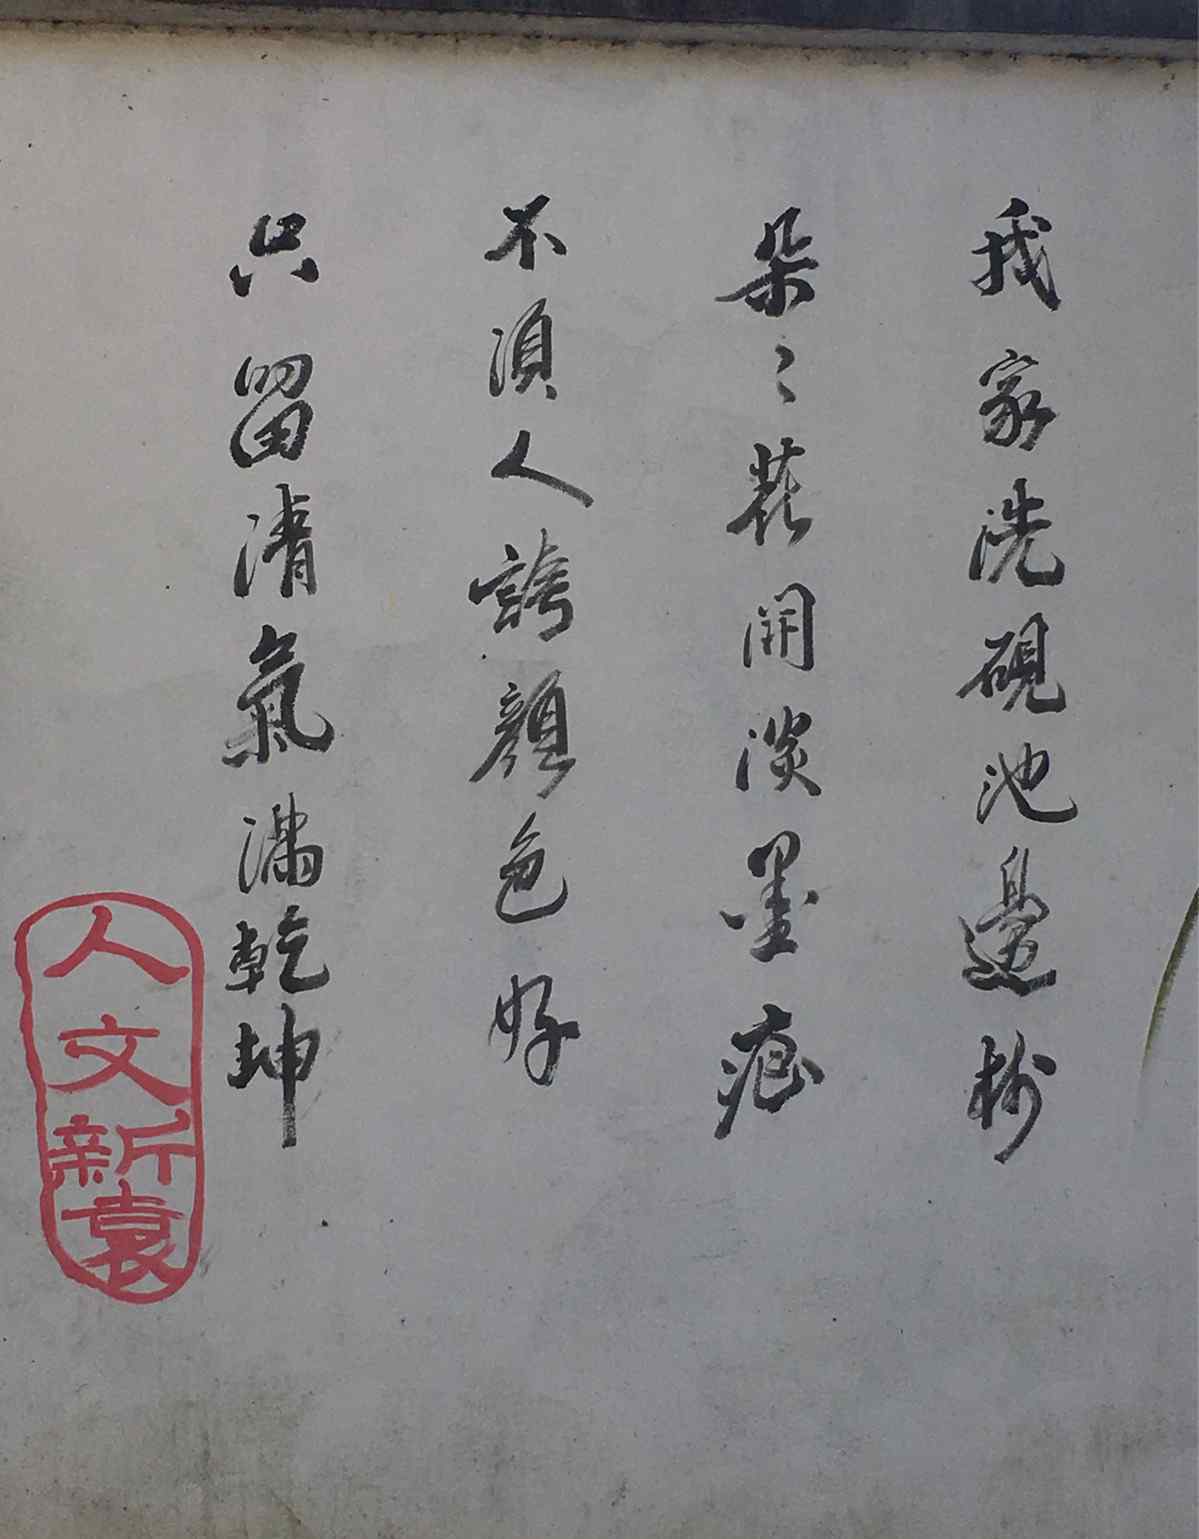 我家洗硯池邊樹
朵々花開淡墨痕
不須人誇顏色好
只留清氣滿乾坤
人文新袁